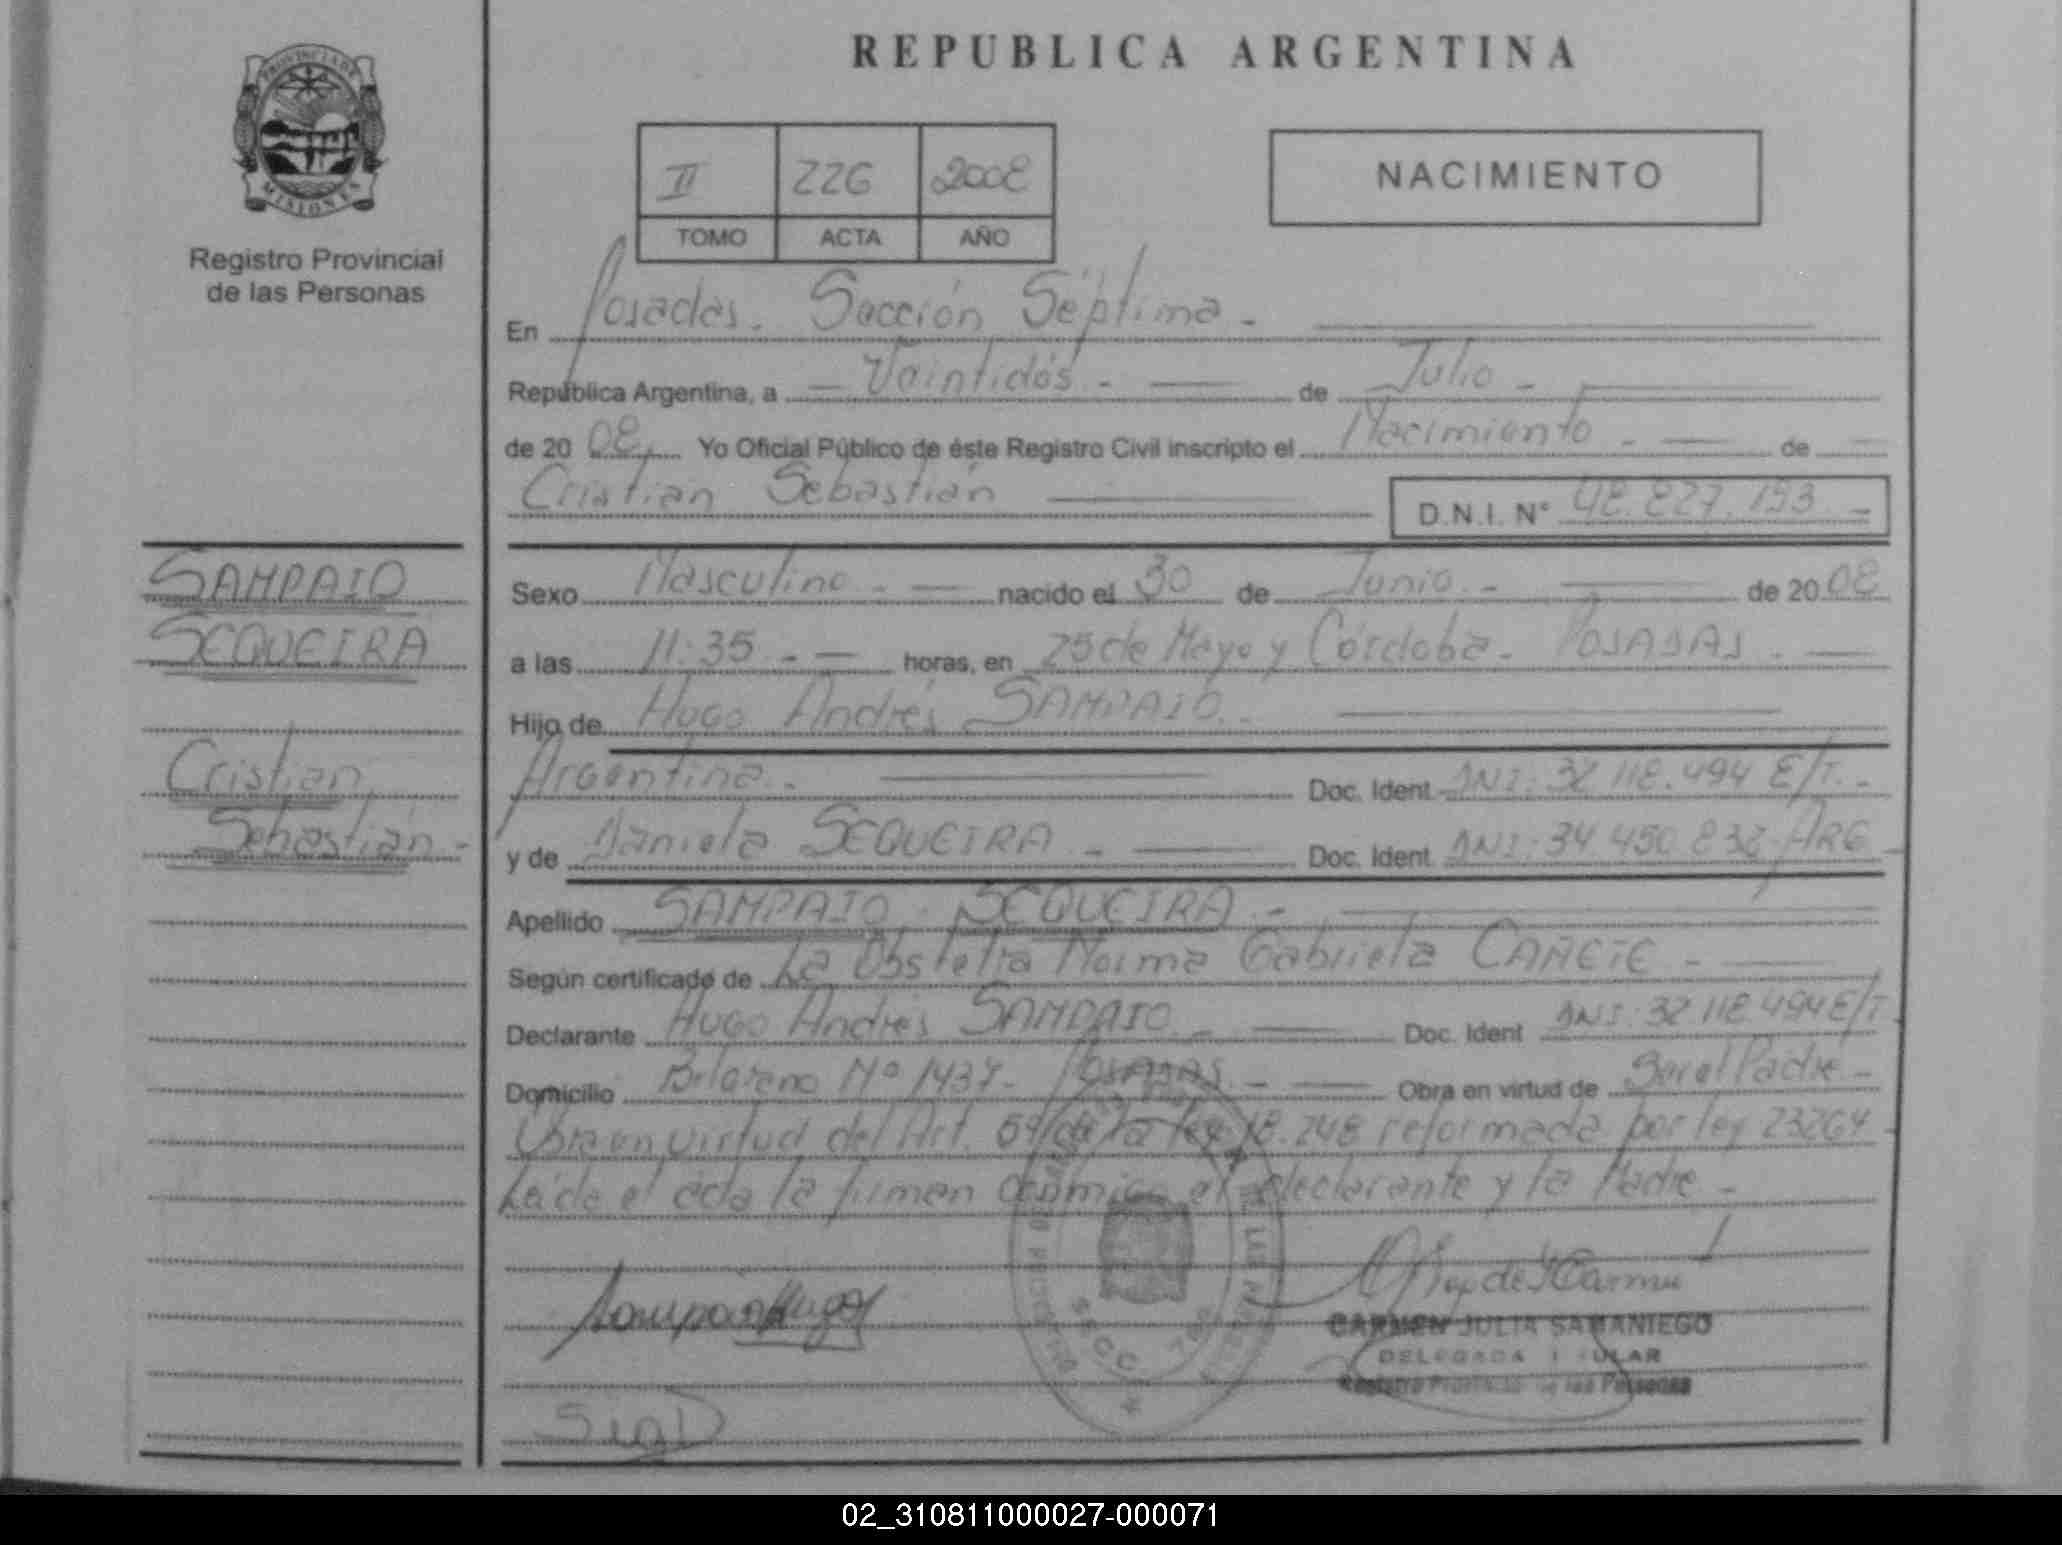 REPUBLICA ARGENTINA
PROVINCIA DE
MISIONES
Registro Provincial
de las Personas
II 226 2008
TOMO ACTA AÑO
NACIMIENTO
En Posadas. Sección Séptima -
República Argentina, a - Veintidós - de Julio -
de 20 08, Yo Oficial Público de éste Registro Civil inscripto el Nacimiento - de
Cristian Sebastián
D.N.I. N° 48.827.193 -
SAMPAIO
SEQUEIRA
Cristian
Sebastián -
Sexo Masculino - nacido el 30 de Junio - de 20 08
a las 11:35 - horas, en 25 de Mayo y Córdoba - POSADAS -
Hijo de Hugo Andrés SAMPAIO -
Argentina - Doc. Ident DNI: 32 118.494 E/T. -
y de Daniela SEQUEIRA - Doc. Ident. DNI: 34 450 838 ARG -
Apellido SAMPAIO SEQUEIRA -
Según certificado de La Obstetra Norma Gabriela CAÑETE -
Declarante Hugo Andrés SAMPAIO - Doc. Ident DNI: 32 118 494 E/T
Domicilio Nº 1437 - POSADAS - Obra en virtud de Ser el Padre -
Obra en virtud del Art. 5º de la ley 18.248 reformada por ley 23264 -
Leída el acta la firman conmigo el declarante y la Madre -
Sampaio Hugo
CARMEN JULIA SAMANIEGO
DELEGADA TITULAR
Registro Provincial de las Personas
SECC. 7ma
02_310811000027-000071